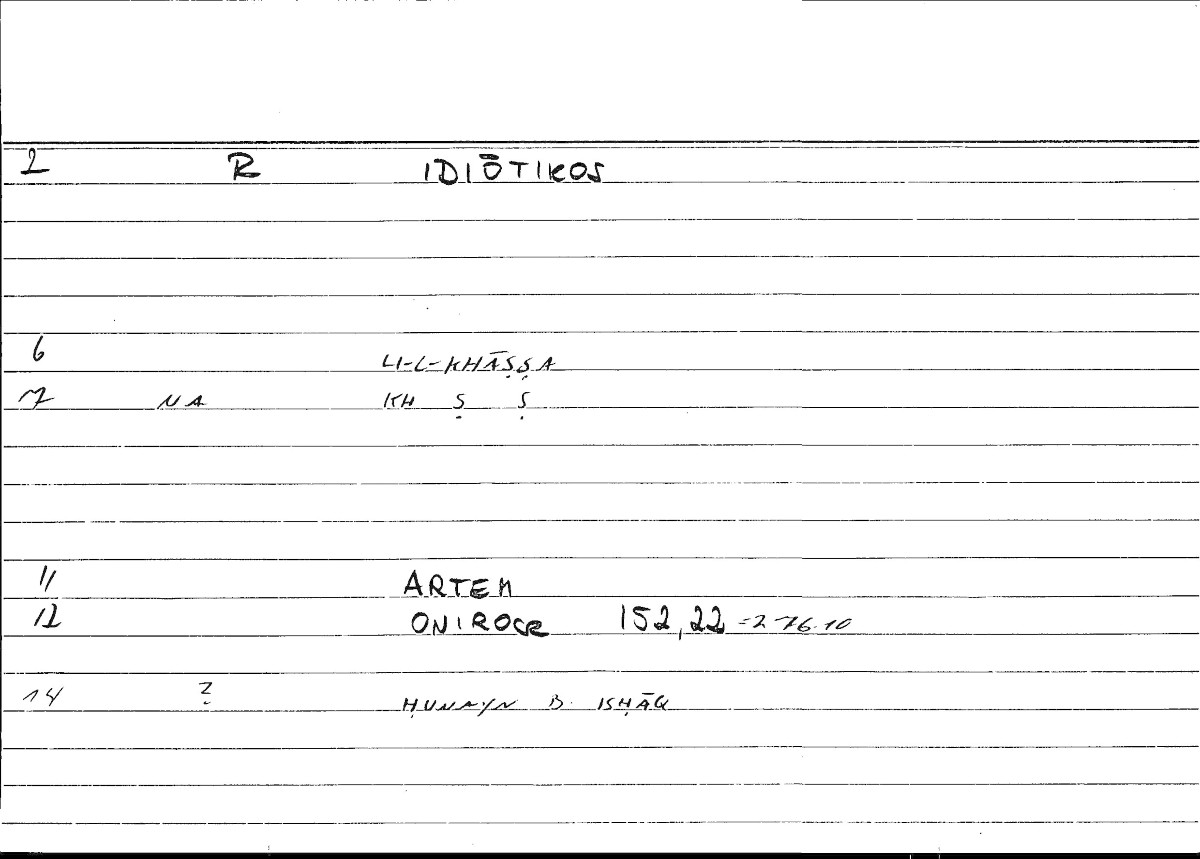 2 R IDIŌTIKOS
6 LI-L-KHĀṢṢA
7 NA KH Ṣ Ṣ
11 ARTEM
12 ONIROCR 152,22 =276.10
14 Ẓ ḤUNAYN B. ISḤĀQ